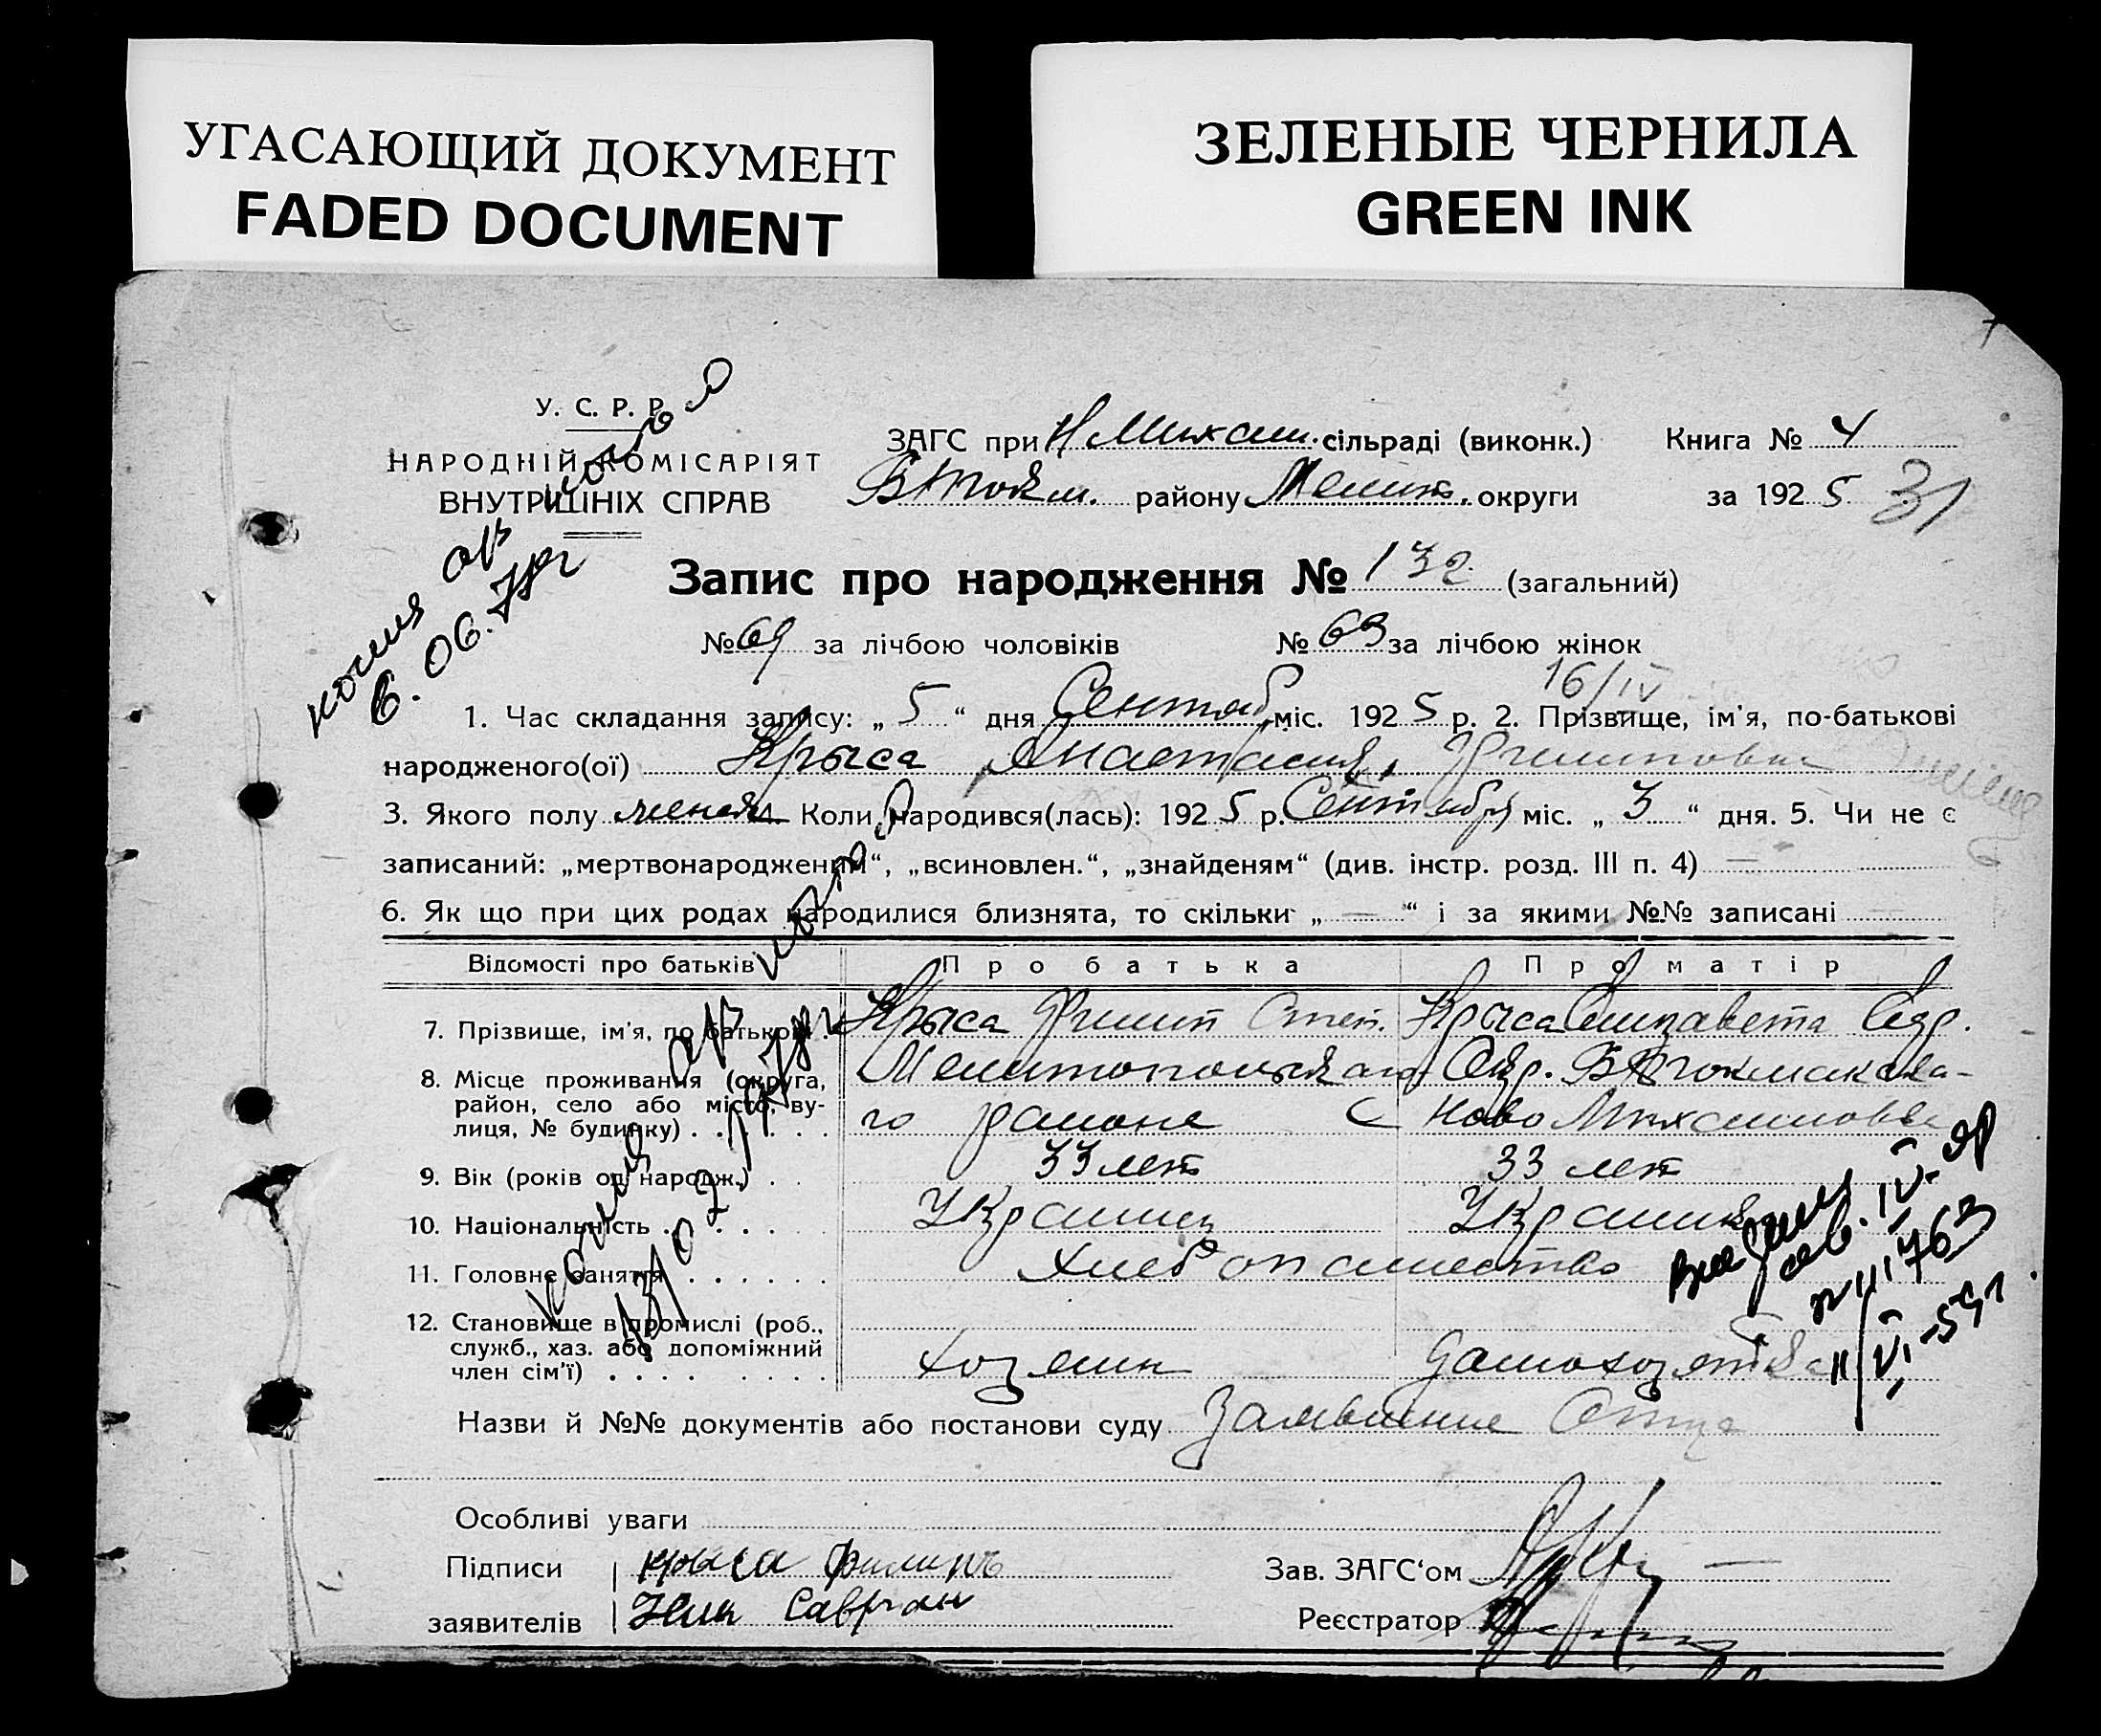 УГАСАЮЩИЙ ДОКУМЕНТ
FADED DOCUMENT
ЗЕЛЕНЫЕ ЧЕРНИЛА
GREEN INK
У. С. Р. Р.
НАРОДНІЙ КОМІСАРІЯТ
ВНУТРІШНІХ СПРАВ
ЗАГС при Н Михайл. сільраді (виконк.) Книга № 4
ВТокм. району Мелит. округи за 1925 31
Запис про народження № 132 (загальний)
№ 69 за лічбою чоловіків № 63 за лічбою жінок
16/IV
1. Час складання запису: „ 5 “ дня Сентяб. міс. 1925 р. 2. Прізвище, ім'я, по-батькові
народженого(ої) Крыса Анастасия, Филиповна
3. Якого полу женск 4. Коли народився(лась): 1925 р. Сентября міс. „ 3 “ дня. 5. Чи не є
записаний: „мертвонароджений“, „всиновлен.“, „знайденям“ (див. інстр. розд. III п. 4) —
6. Як що при цих родах народилися близнята, то скільки „ — “ і за якими №№ записані
Відомості про батьків Про батька Про матір
7. Прізвище, ім'я, по батькові . Крыса Филип Степ. Крыса Елизавета Федр.
8. Місце проживання (округа, район, село або місто, вулиця, № будинку) . . . . . . Мелитопольск Окр. ВТокмакска-
го района С Ново Михайловка
9. Вік (років од народж.) . . 33 лет 33 лет
10. Національність . . . . . Украинец Украинка
11. Головне заняття . . . . . . Хлебопашество
12. Становище в промислі (роб., служб., хаз. або допоміжний член сім'ї) . . . . . . . . Хозяин домохозяйка
Назви й №№ документів або постанови суду Заявление Отца
Особливі уваги
Підписи Крыса Филипъ Зав. ЗАГС‘ом
заявителів Савран Реєстратор
копия
6.06.78г
копия
13/07.1978г
11/VI-59г